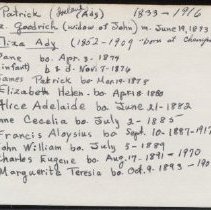 Patrick (Ady) 1833-1916
Goodrich (widow of John) m. June 19, 1873
Eliza Ady (1852-1909 "born at
Jane bo. Apr. 3-1874
(infant) b & d Nov. 7-1876
James Patrick bo. Mar. 19-1878
Elizabeth Helen - bo. Apr 18-1880
Alice Adelaide bo. June 21-1882
Anne Cecelia bo. July 2-1885
Francis Aloysius bo. Sept. 10-1887-191
John William bo. July 5-1889
Charles Eugene bo. Aug. 17-1891-1970
Marguerite Teresia bo. Oct. 9. 1893-190